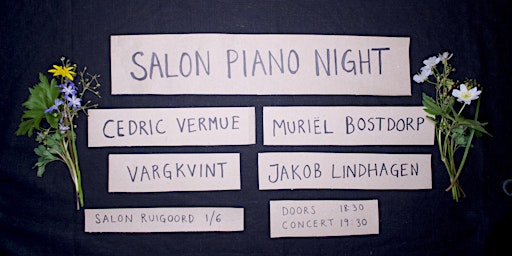 SALON PIANO NIGHT
CEDRIC VERMUE
MURIËL BOSTDORP
VARGKVINT
JAKOB LINDHAGEN
SALON RUIGOORD 1/6
DOORS 18:30
CONCERT 19:30